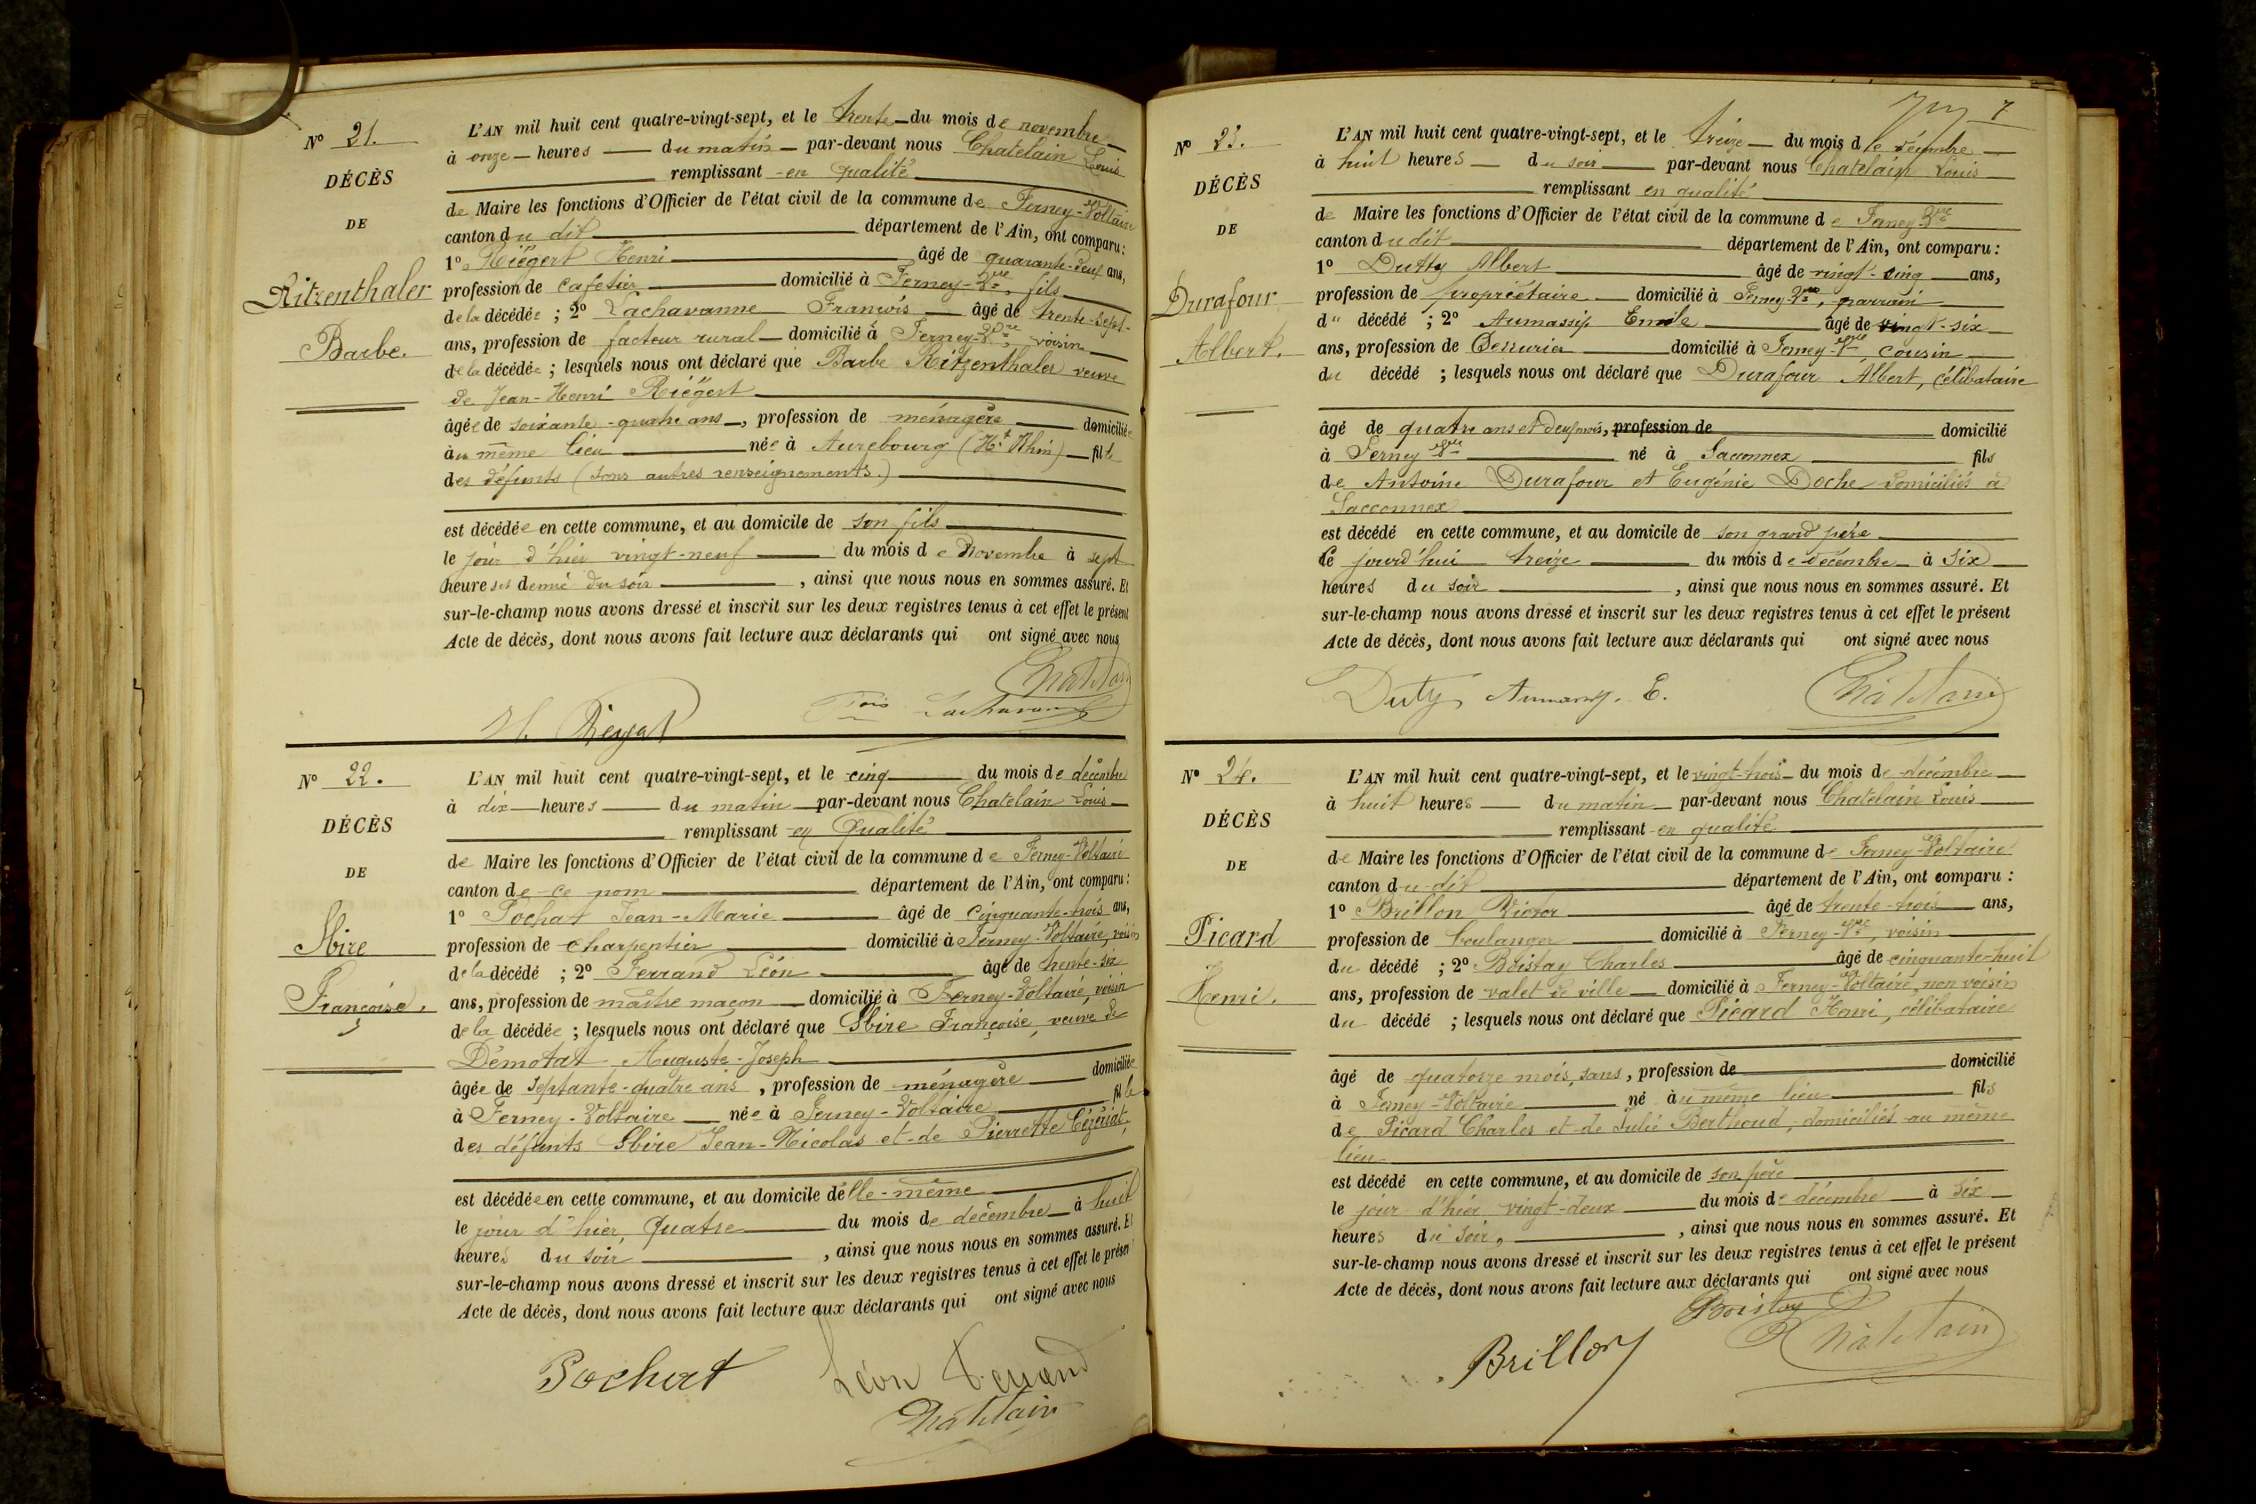 Nº 21.
DÉCÈS
DE
Ritzenthaler
Barbe.
L'AN mil huit cent quatre-vingt-sept, et le trente du mois de novembre
à onze heures du matin par-devant nous Chatelain Louis
remplissant en qualité
de Maire les fonctions d'Officier de l'état civil de la commune de Ferney-Voltaire
canton du dit département de l'Ain, ont comparu :
1º Riégert Henri âgé de quarante-deux ans,
profession de cafetier domicilié à Ferney-Vre, fils
de la décédée ; 2º Lachavanne François âgé de trente-sept
ans, profession de facteur rural domicilié à Ferney-Vre, voisin
de la décédée ; lesquels nous ont déclaré que Barbe Ritzenthaler veuve
de Jean-Henri Riégert
âgée de soixante-quatre ans, profession de ménagère domiciliée
au même lieu née à Aurebourg (Ht Rhin) fille
des défunts (sans autres renseignements.)
est décédée en cette commune, et au domicile de son fils
le jour d'hier vingt-neuf du mois de Novembre à sept
heures et demie du soir, ainsi que nous nous en sommes assuré. Et
sur-le-champ nous avons dressé et inscrit sur les deux registres tenus à cet effet le présent
Acte de décès, dont nous avons fait lecture aux déclarants qui ont signé avec nous
Chatelain
H. Riegert Fois Lachavanne
Nº 22.
DÉCÈS
DE
Sbire
Françoise,
L'AN mil huit cent quatre-vingt-sept, et le cinq du mois de décembre
à dix heures du matin par-devant nous Chatelain Louis
remplissant en Qualité
de Maire les fonctions d'Officier de l'état civil de la commune de Ferney-Voltaire
canton de ce nom département de l'Ain, ont comparu :
1º Pochat Jean-Marie âgé de cinquante-trois ans,
profession de charpentier domicilié à Ferney-Voltaire, voisin
de la décédé ; 2º Ferrand Léon âgé de trente-six
ans, profession de maître maçon domicilié à Ferney-Voltaire, voisin
de la décédée ; lesquels nous ont déclaré que Sbire Françoise, veuve de
Démotat Auguste-Joseph
âgée de septante-quatre ans, profession de ménagère domiciliée
à Ferney-Voltaire née à Ferney-Voltaire fille
des défunts Sbire Jean-Nicolas et de Pierrette Cézériat,
est décédée en cette commune, et au domicile d'elle-même
le jour d'hier, Quatre du mois de décembre à huit
heures du soir, ainsi que nous nous en sommes assuré. Et
sur-le-champ nous avons dressé et inscrit sur les deux registres tenus à cet effet le présent
Acte de décès, dont nous avons fait lecture aux déclarants qui ont signé avec nous
Pochat Léon Ferrand
Chatelain
7
Nº 23.
DÉCÈS
DE
Durafour
Albert.
L'AN mil huit cent quatre-vingt-sept, et le treize du mois de décembre
à huit heures du soir par-devant nous Chatelain Louis
remplissant en qualité
de Maire les fonctions d'Officier de l'état civil de la commune de Ferney-Vre
canton du dit département de l'Ain, ont comparu :
1º Dutty Albert âgé de vingt-cinq ans,
profession de propriétaire domicilié à Ferney-Vre, parrain
du décédé ; 2º Aumassip Emile âgé de vingt-six
ans, profession de Serrurier domicilié à Ferney-Vre cousin
du décédé ; lesquels nous ont déclaré que Durafour Albert, célibataire
âgé de quatre ans et deux mois, profession de domicilié
à Ferney Vre né à Saconnex fils
de Antoine Durafour et Eugénie Doche domiciliés à
Sacconnex
est décédé en cette commune, et au domicile de son grand père
le jourd'hui treize du mois de décembre à six
heures du soir, ainsi que nous nous en sommes assuré. Et
sur-le-champ nous avons dressé et inscrit sur les deux registres tenus à cet effet le présent
Acte de décès, dont nous avons fait lecture aux déclarants qui ont signé avec nous
Duty E. Chatelain
Nº 24.
DÉCÈS
DE
Picard
Henri.
L'AN mil huit cent quatre-vingt-sept, et le vingt-trois du mois de décembre
à huit heures du matin par-devant nous Chatelain Louis
remplissant en qualité
de Maire les fonctions d'Officier de l'état civil de la commune de Ferney-Voltaire
canton du dit département de l'Ain, ont comparu :
1º Brillon Victor âgé de trente-trois ans,
profession de boulanger domicilié à Ferney-Vre, voisin
du décédé ; 2º Boistay Charles âgé de cinquante-huit
ans, profession de valet de ville domicilié à Ferney-Voltaire, non voisin
du décédé ; lesquels nous ont déclaré que Picard Henri, célibataire
âgé de quatorze mois, sans, profession de domicilié
à Ferney-Voltaire né au même lieu fils
de Picard Charles et de Julie Berthoud, domiciliés au même
lieu
est décédé en cette commune, et au domicile de son père
le jour d'hier vingt-deux du mois de décembre à six
heures du soir, ainsi que nous nous en sommes assuré. Et
sur-le-champ nous avons dressé et inscrit sur les deux registres tenus à cet effet le présent
Acte de décès, dont nous avons fait lecture aux déclarants qui ont signé avec nous
Boistay
Brillon Chatelain